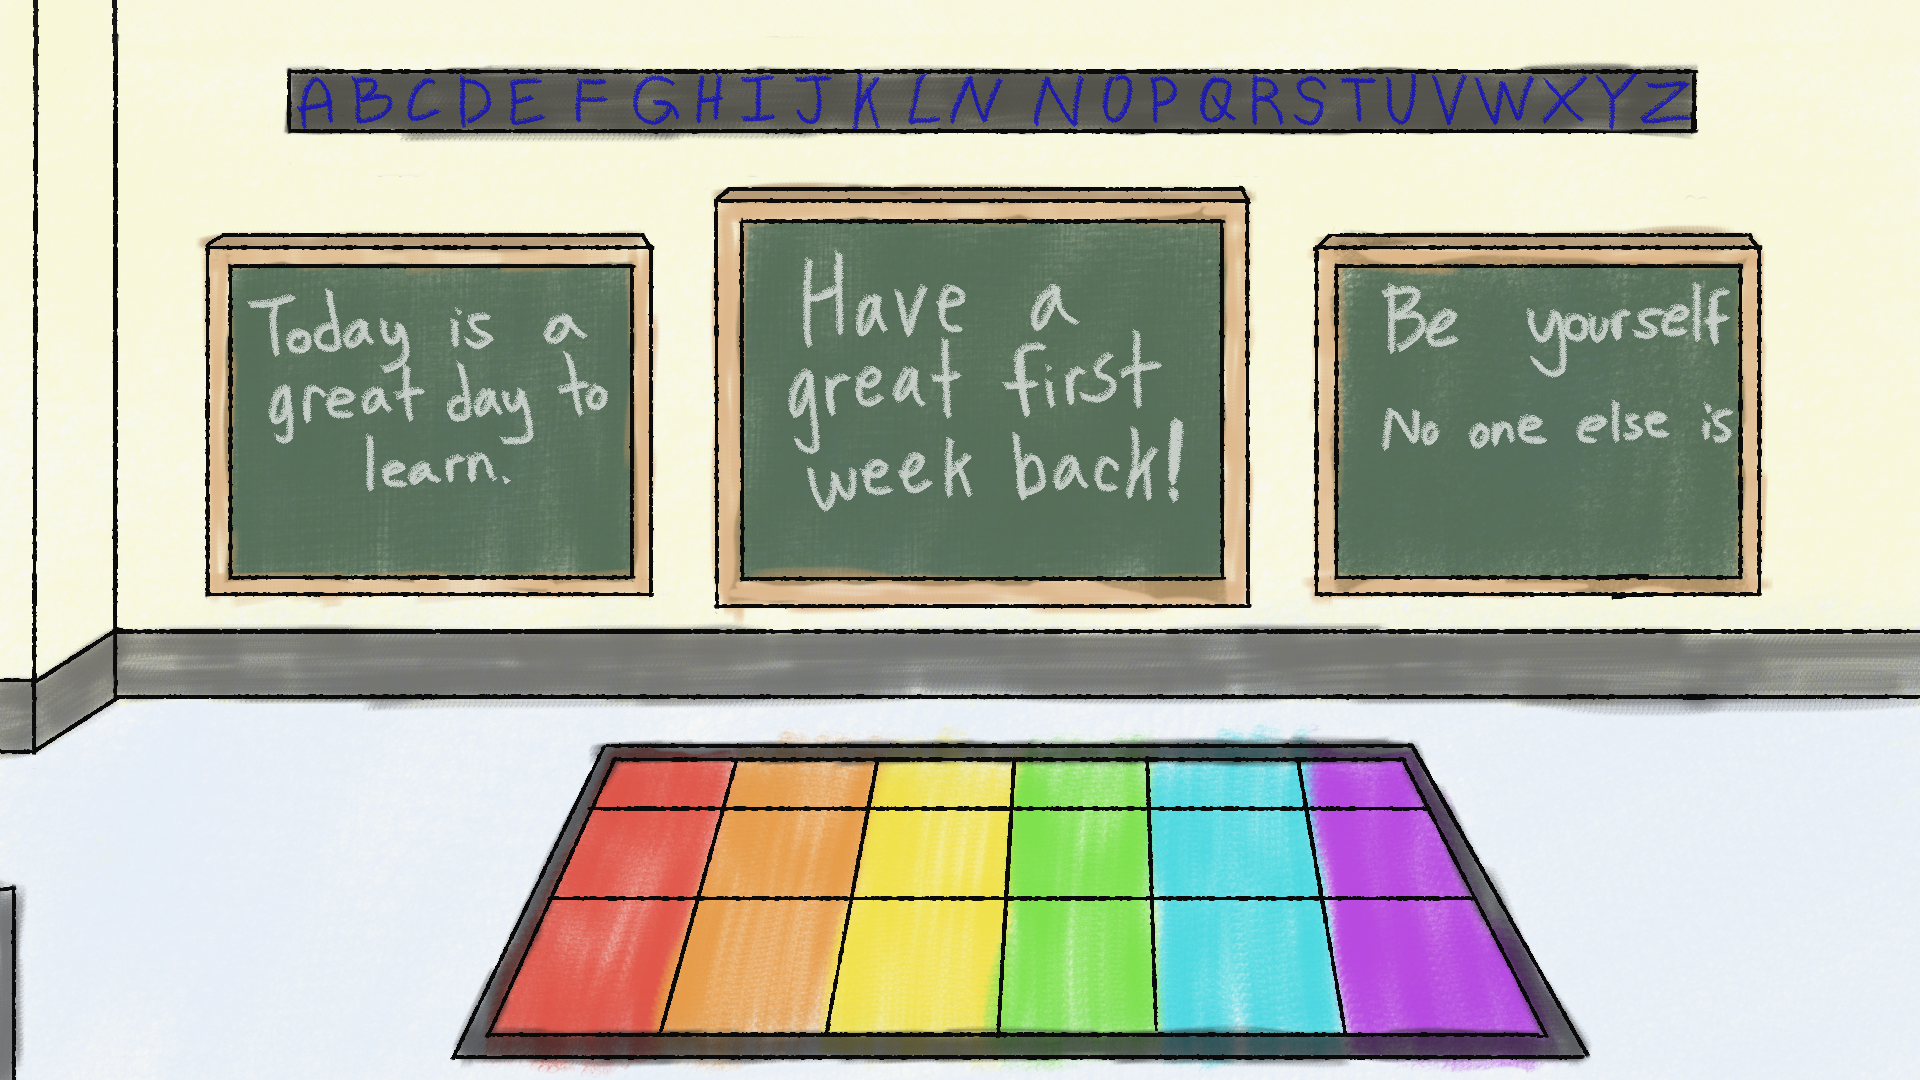 ABCDEFGHIJKLN NOPQRSTUVWXYZ
Today is a
great day to
learn.
Have a
great first
week back!
Be yourself
No one else is